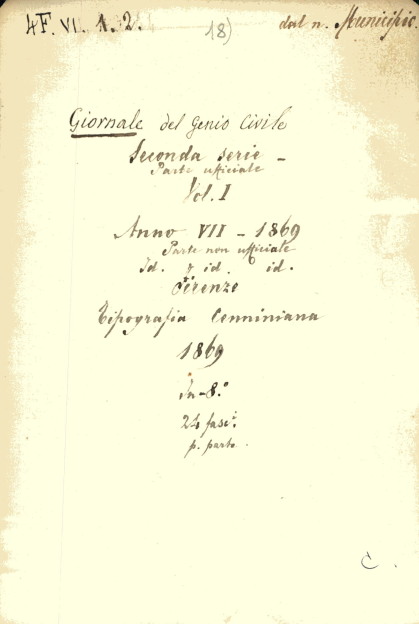 4F. VI. 1. 2. 18) dal n. Municipio.
Giornale del Genio Civile
Seconda serie -
Parte ufficiale
Vol. I
Anno VII - 1869
Parte non ufficiale
Id. id. id.
Firenze
Tipografia Cenniniana
1869
In-8.°
24 fasci.
p. parte.
C.